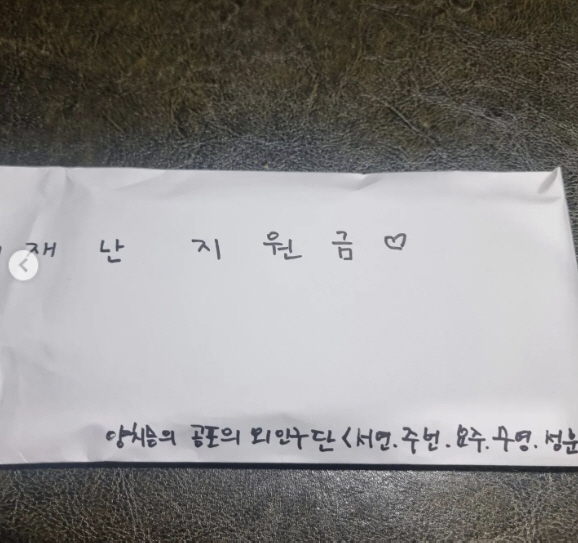 재난 지원금♡
양치승의 공포의 외인구단<서연.주번.요주.무영.성훈